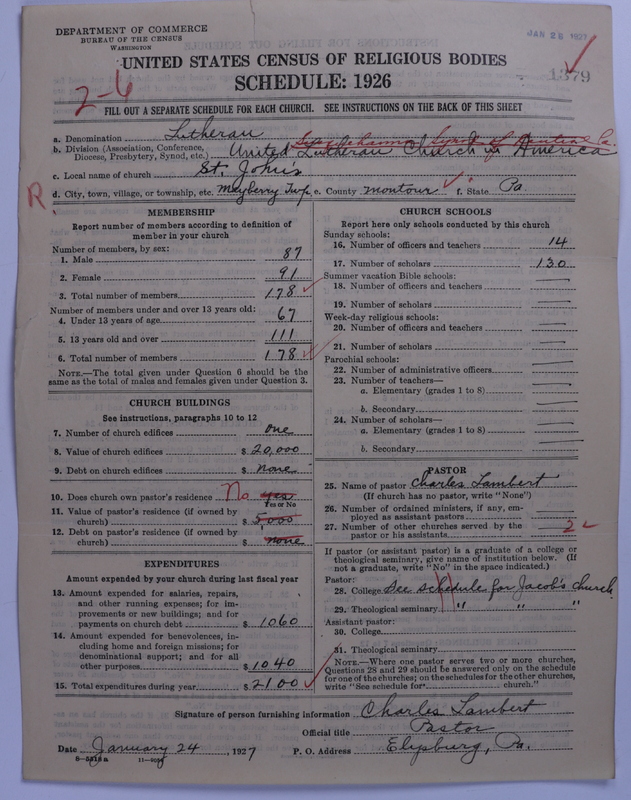 DEPARTMENT OF COMMERCE
BUREAU OF THE CENSUS
WASHINGTON
JAN 28 1927
UNITED STATES CENSUS OF RELIGIOUS BODIES
SCHEDULE: 1926
1379
2-6
FILL OUT A SEPARATE SCHEDULE FOR EACH CHURCH. SEE INSTRUCTIONS ON THE BACK OF THIS SHEET
a. Denomination Lutheran
Susquehanna Synod of Central Pa.
b. Division (Association, Conference, Diocese, Presbytery, Synod, etc.) United Lutheran Church in America
c. Local name of church St. John's
R.
d. City, town, village, or township, etc. Mayberry Twp. e. County Montour f. State Pa
MEMBERSHIP
Report number of members according to definition of member in your church
Number of members, by sex:
1. Male 87
2. Female 91
3. Total number of members 178
Number of members under and over 13 years old:
4. Under 13 years of age 67
5. 13 years old and over 111
6. Total number of members 178
NOTE.—The total given under Question 6 should be the same as the total of males and females given under Question 3.
CHURCH BUILDINGS
See instructions, paragraphs 10 to 12
7. Number of church edifices One
8. Value of church edifices $ 20,000
9. Debt on church edifices $ None
10. Does church own pastor's residence No yes
Yes or No
11. Value of pastor's residence (if owned by church) $ 5,000
12. Debt on pastor's residence (if owned by church) $ none
EXPENDITURES
Amount expended by your church during last fiscal year
13. Amount expended for salaries, repairs, and other running expenses; for improvements or new buildings; and for payments on church debt $ 1060
14. Amount expended for benevolences, including home and foreign missions; for denominational support; and for all other purposes $ 1040
15. Total expenditures during year $ 2100
CHURCH SCHOOLS
Report here only schools conducted by this church
Sunday schools:
16. Number of officers and teachers 14
17. Number of scholars 130
Summer vacation Bible schools:
18. Number of officers and teachers
19. Number of scholars
Week-day religious schools:
20. Number of officers and teachers
21. Number of scholars
Parochial schools:
22. Number of administrative officers
23. Number of teachers—
a. Elementary (grades 1 to 8)
b. Secondary
24. Number of scholars—
a. Elementary (grades 1 to 8)
b. Secondary
PASTOR
25. Name of pastor Charles Lambert
(If church has no pastor, write "None")
26. Number of ordained ministers, if any, employed as assistant pastors
27. Number of other churches served by the pastor or his assistants 2
If pastor (or assistant pastor) is a graduate of a college or theological seminary, give name of institution below. (If not a graduate, write "No" in the space indicated.)
Pastor:
28. College See schedule for Jacob's church
29. Theological seminary " " "
Assistant pastor:
30. College
31. Theological seminary
NOTE.—Where one pastor serves two or more churches, Questions 28 and 29 should be answered only on the schedule for one of the churches; on the schedules for the other churches, write "See schedule for church."
Signature of person furnishing information Charles Lambert
Official title Pastor
Date January 24, 1927 P. O. Address Elysburg, Pa.